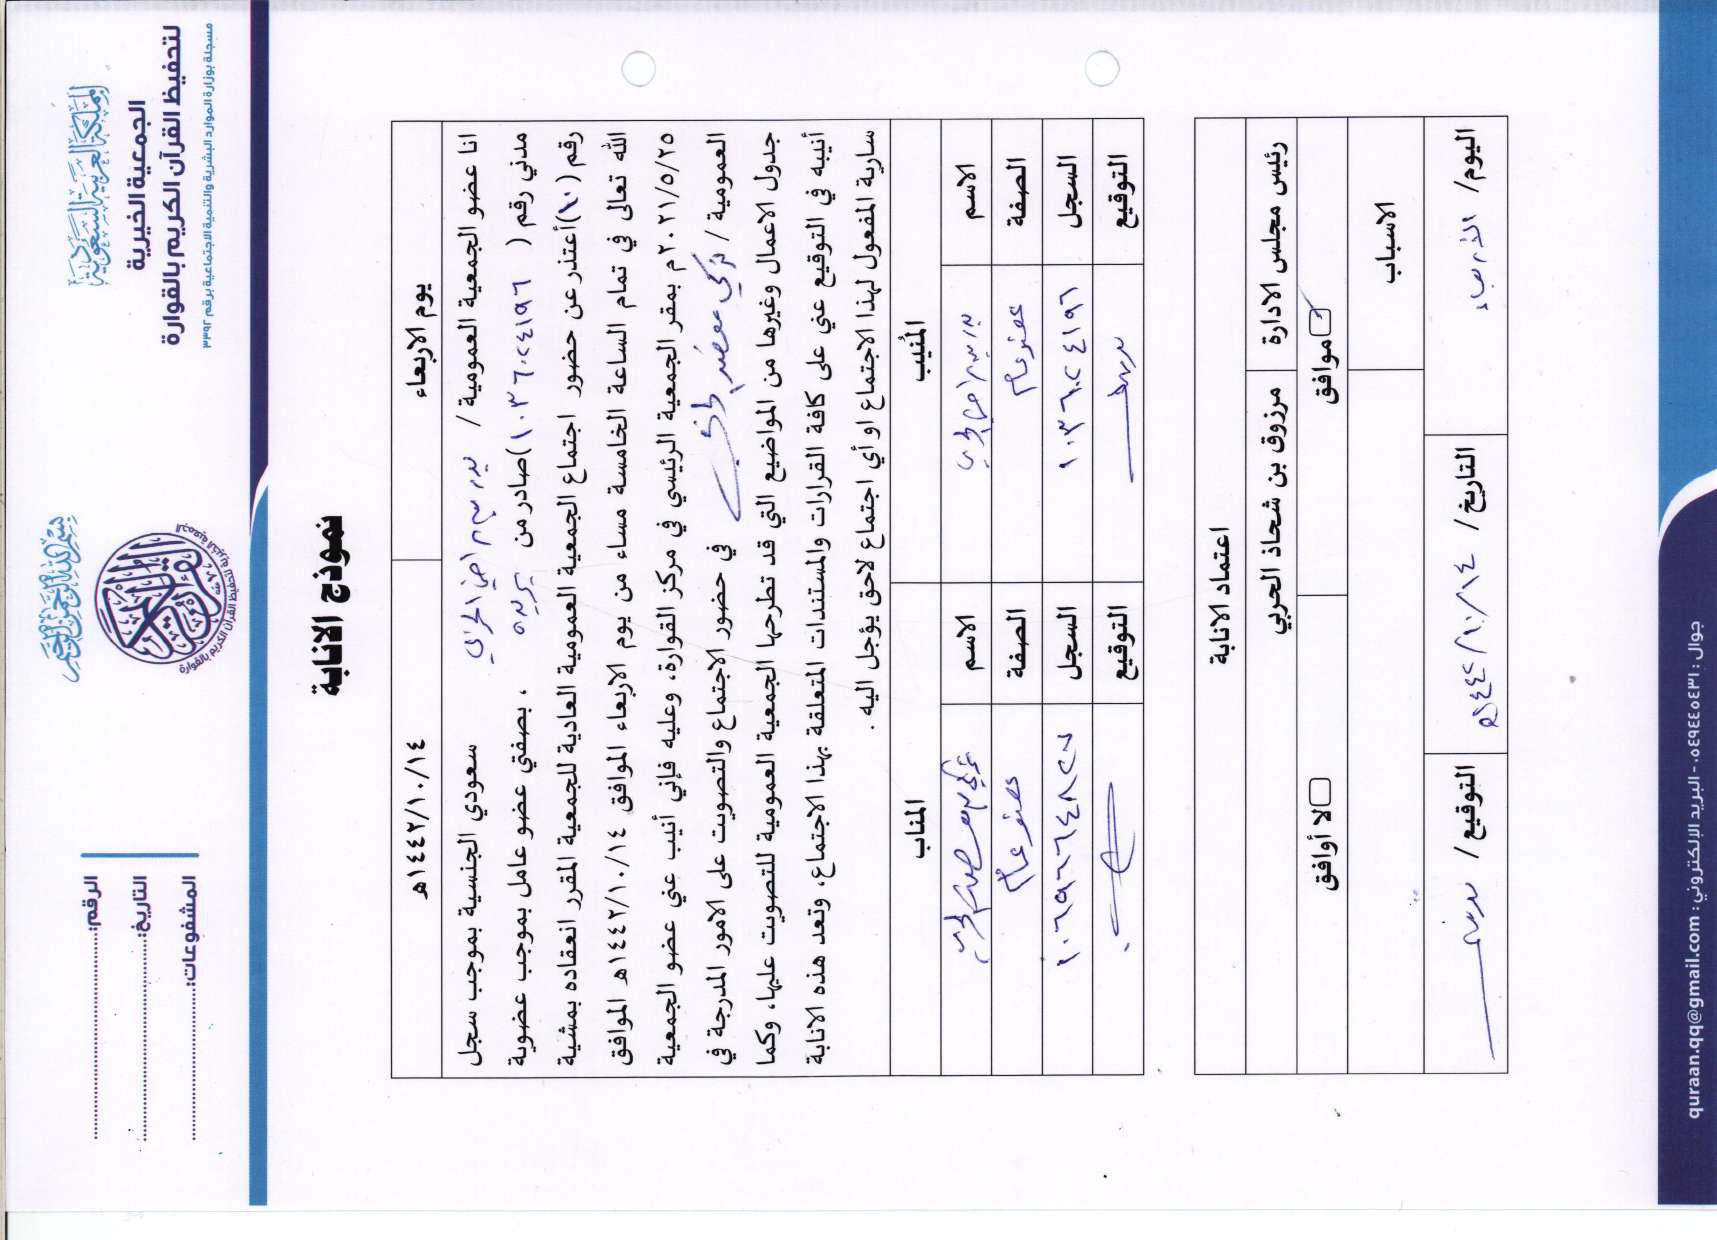 المملكة العربية السعودية
الجمعية الخيرية
لتحفيظ القرآن الكريم بالقوارة
مسجلة بوزارة الموارد البشرية والتنمية الاجتماعية برقم ٣٣٩٢
بسم الله الرحمن الرحيم
القرآن الكريم
الجمعية الخيرية لتحفيظ القرآن الكريم بالقوارة
الرقم:
التاريخ:
المشفوعات:
نموذج الانابة
يوم الاربعاء ١٤٤٢/١٠/١٤هـ
انا عضو الجمعية العمومية / بدر الحربي سعودي الجنسية بموجب سجل
مدني رقم ( ١٠٣٦٠٢٤١٩٦)صادر من بريده ، بصفتي عضو عامل بموجب عضوية
رقم (١٠)أعتذر عن حضور اجتماع الجمعية العمومية العادية للجمعية المقرر انعقاده بمشية
الله تعالى في تمام الساعة الخامسة مساء من يوم الاربعاء الموافق ١٤٤٢/١٠/١٤هـ الموافق
٢٠٢١/٥/٢٥م بمقر الجمعية الرئيسي في مركز القوارة، وعليه فإني أنيب عني عضو الجمعية
العمومية / تركي الحربي في حضور الاجتماع والتصويت على الامور المدرجة في
جدول الاعمال وغيرها من المواضيع التي قد تطرحها الجمعية العمومية للتصويت عليها، وكما
أنيبه في التوقيع عني على كافة القرارات والمستندات المتعلقة بهذا الاجتماع، وتعد هذه الانابة
سارية المفعول لهذا الاجتماع او أي اجتماع لاحق يؤجل اليه .
المُنيب المناب
الاسم بدر الحربي الاسم تركي الحربي
الصفة عضو عام الصفة عضو عام
السجل ١٠٣٦٠٢٤١٩٦ السجل
التوقيع التوقيع
اعتماد الانابة
رئيس مجلس الادارة مرزوق بن شحاذ الحربي
موافق لا أوافق
الاسباب
اليوم/ الأربعاء التاريخ/ ١٠/١٤ التوقيع/
جوال : ٠٥٤٩٤٤٥٤٣١ - البريد الإلكتروني : quraan.qq@gmail.com